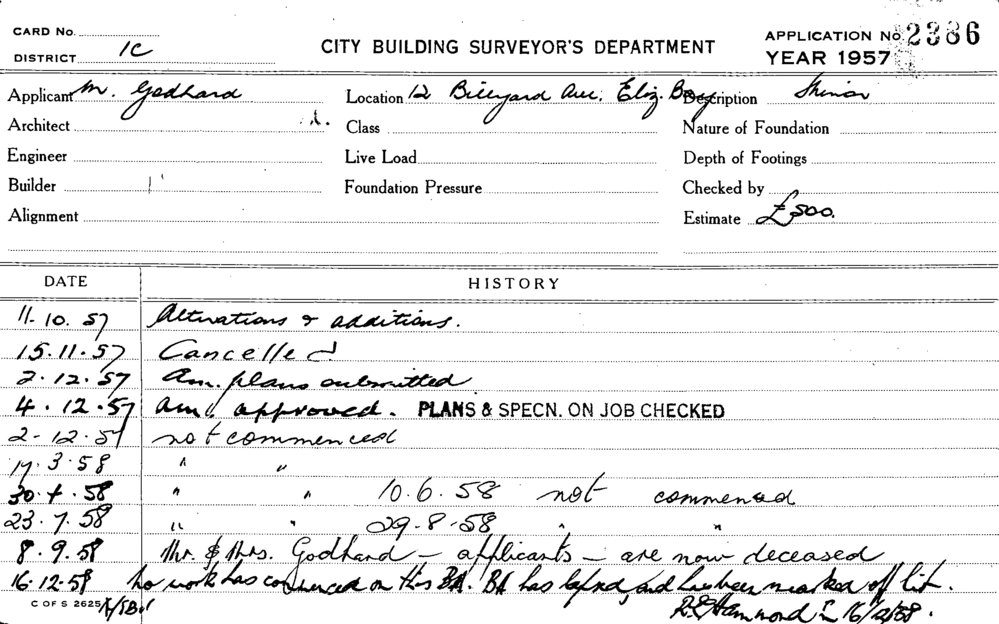 CARD No.
DISTRICT 1C
CITY BUILDING SURVEYOR'S DEPARTMENT
APPLICATION No. 2386
YEAR 1957
Applicant M. Godhard Location 12 Billyard Ave. Eliz. Bay Description Minor
Architect Class Nature of Foundation
Engineer Live Load Depth of Footings
Builder Foundation Pressure Checked by
Alignment Estimate £500.
DATE HISTORY
11.10.57 Alterations & additions.
15.11.57 Cancelled
2.12.57 Am. plans submitted
4.12.57 Am. approved. PLANS & SPECN. ON JOB CHECKED
2-12.57 not commenced
17.3.58 " "
30.4.58 " " 10.6.58 not commenced
23.7.58 " " 29.8.58 " "
8.9.58 Mr. & Mrs. Godhard - applicants - are now deceased
16.12.58 No work has commenced on this BA. BA has lapsed, and has been marked off list.
C OF S 2625
Hammond 16/12/58.